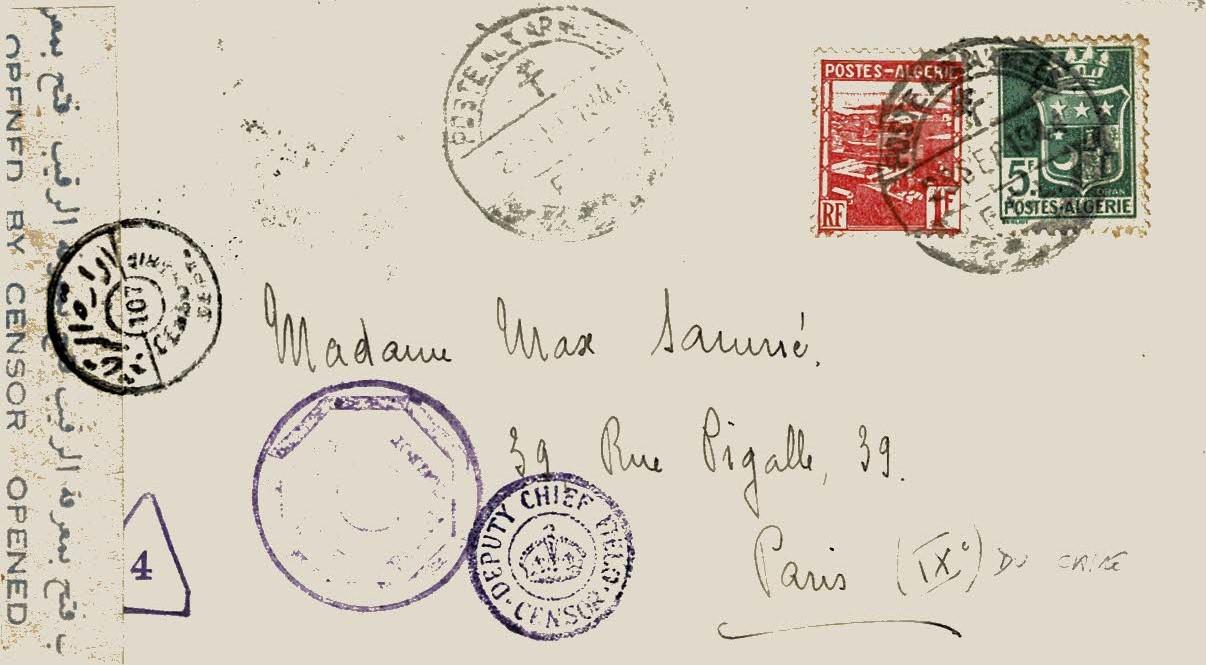 OPENED BY CENSOR OPENED
فتح بمعرفة الرقيب فتح بمعرفة الرقيب
POSTE AUX ARMEES
POSTES-ALGERIE
RF
1F
5F
ORAN
POSTES-ALGERIE
POSTE AUX ARMEES
107
EGYPT.
CENSORSHIP
Madame Max
39 Rue Pigalle, 39.
Paris (IXe) DU CAIRE
DEPUTY CHIEF FIELD
CENSOR
4